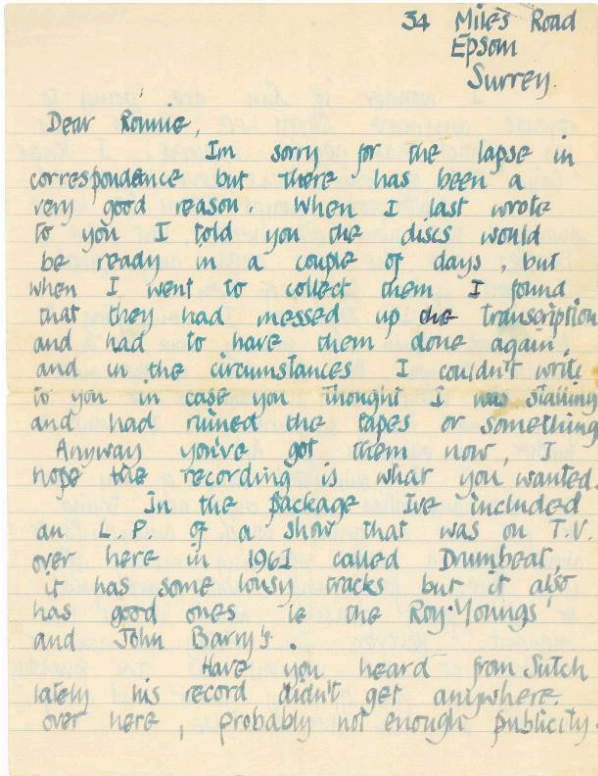 34 Miles Road
Epsom
Surrey.
Dear Ronnie,
Im sorry for the lapse in
correspondance but there has been a
very good reason. When I last wrote
to you I told you the discs would
be ready in a couple of days, but
when I went to collect them I found
that they had messed up the transcription
and had to have them done again,
and in the circumstances I couldn't write
to you in case you thought I was stalling
and had ruined the tapes or something
Anyway you've got them now, I
hope the recording is what you wanted.
In the package Ive included
an L.P. of a show that was on T.V.
over here in 1961 called Drumbeat,
it has some lousy tracks but it also
has good ones ie the Roy Youngs
and John Barry's.
Have you heard from Sutch
lately his record didn't get anywhere.
over here, probably not enough publicity.